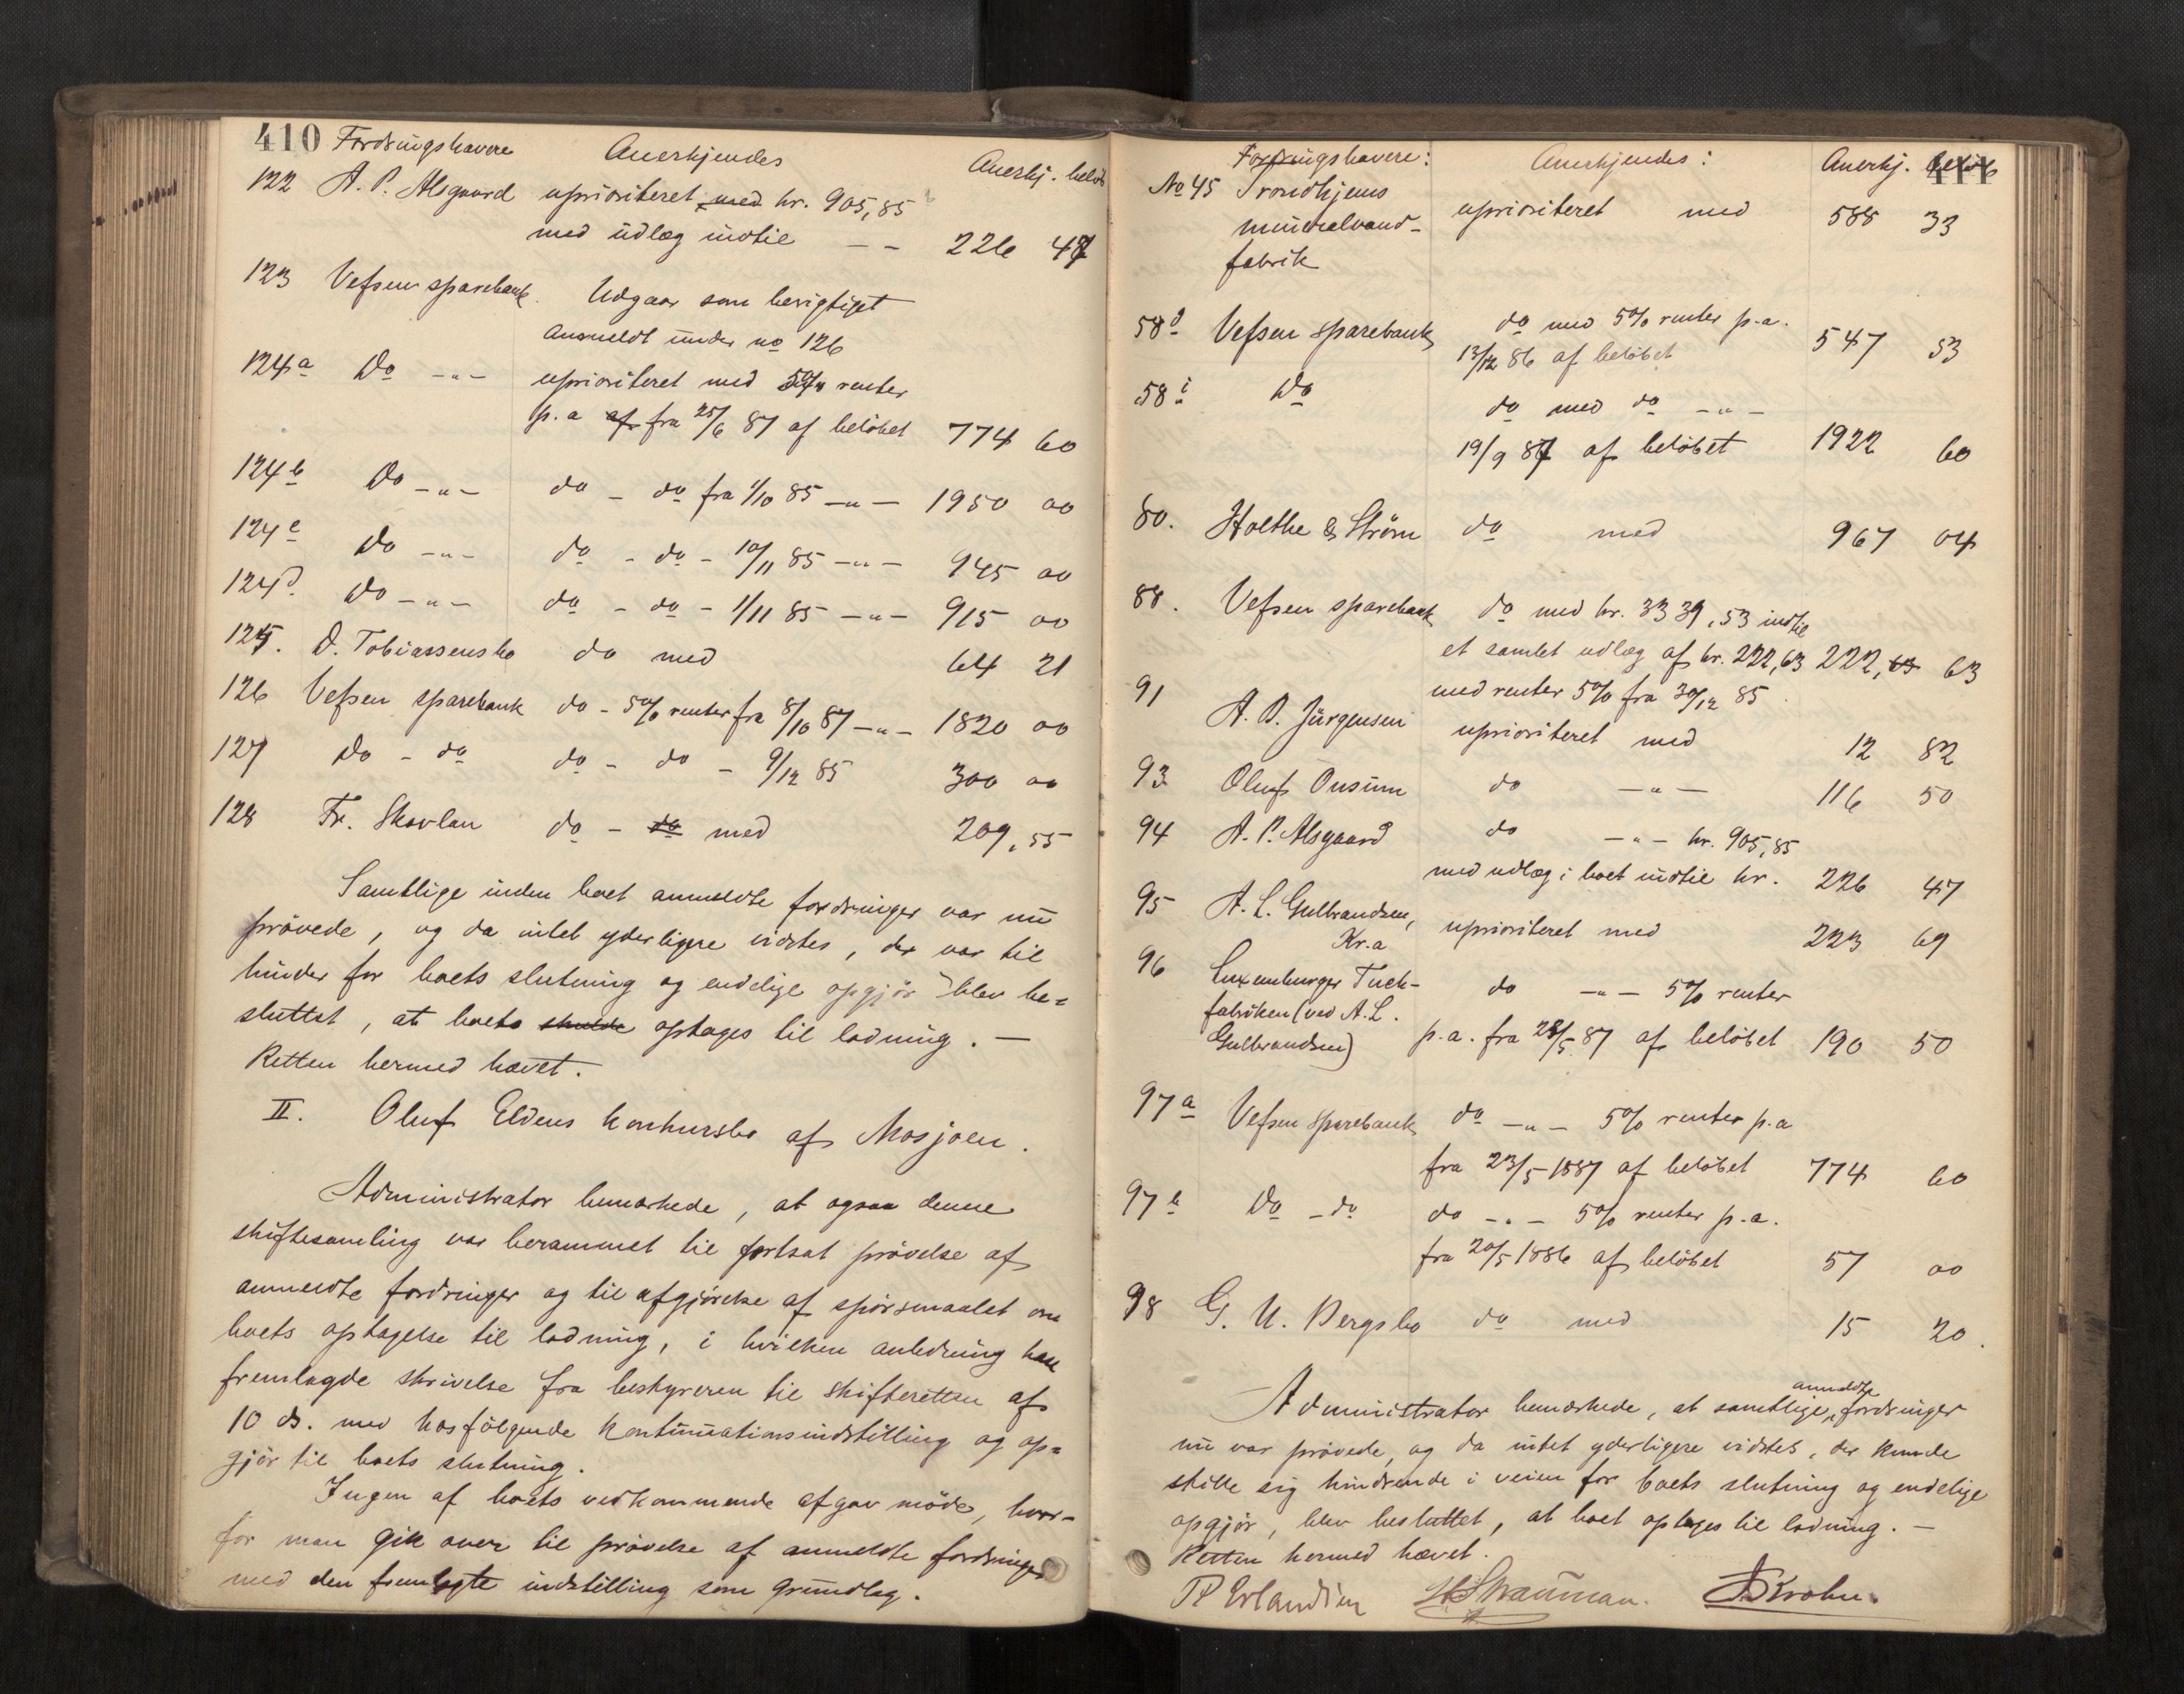 410 Fordringshavere Anerkjendes Anerkj. beløb
122 A. P. Alsgaard uprioriteret med kr. 905,85
med udlæg indtil — — 226 47
123 Vefsen sparebank. Udgaar som berigtiget
anmeldt under no 126
124a Do —„— uprioriteret med 5% renter
p. a af fra 25/6 87 af beløbet 774 60
124b Do —„— do — do fra 1/10 85 —„— 1950 00
124c Do —„— do — do — 10/11 85 —„— 945 00
124d Do —„— do — do — 1/11 85 —„— 915 00
125. D. Tobiassensbo do med 64 21
126 Vefsen sparebank do — 5% renter fra 8/10 87 —„— 1820 00
127 Do — do do — do — 9/12 85 300 00
128 Fr. Skavlan do — do med 209,55
Samtlige inden boet anmeldte fordringer var nu
prøvede, og da intet yderligere vidstes, der var til
hinder for boets slutning og endelige opgjør blev be=
sluttet, at boets skulde optages til lodning. —
Retten hermed hævet.
II. Oluf Eldens konkursbo af Mosjøen.
Administrator bemærkede, at ogsaa denne
skiftesamling var berammet til fortsat prøvelse af
anmeldte fordringer og til afgjørelse af spørsmaalet om
boets optagelse til lodning, i hvilken anledning han
fremlagde skrivelse fra bestyreren til skifteretten af
10 ds. med hosfølgende kontinuationsindstilling og op=
gjør til boets slutning.
Ingen af boets vedkommende afgav møde, hvor-
for man gik over til prøvelse af anmeldte fordringer
med den fremlagte indstilling som grundlag.
411
Fordringshavere: Anerkjendes: Anerkj. beløb
No 45 Trondhjems uprioriteret med 588 33
mineralvand-
fabrik
58d Vefsen sparebank do med 5% renter p. a.
13/12 86 af beløbet 547 53
58i Do do med do —„—
19/9 87 af beløbet 1922 60
80. Holthe & Strøm do med 967 04
88. Vefsen sparebank do med kr. 3339,53 indtil
et samlet udlæg af kr. 222,63 222,63 63
med renter 5% fra 30/12 85.
91 A. B. Jürgensen uprioriteret med 12 82
93 Oluf Onsum do —„— 116 50
94 A. P. Alsgaard do —„— kr. 905,85
med udlæg i boet indtil kr. 226 47
95 A. L. Gulbrandsen, uprioriteret med 223 69
Kr.a
96 Luxemburger Tuch- do —„— 5% renter
fabriken (ved A. L.
Gulbrandsen) p. a. fra 28/5 87 af beløbet 190 50
97a Vefsen sparebank do —„— 5% renter p. a
fra 23/5 1887 af beløbet 774 60
97b Do — do do —„— 5% renter p. a.
fra 20/5 1886 af beløbet 57 00
98 G. U. Bergsbo do med 15 20.
anmeldte
Administrator bemærkede, at samtlige fordringer
nu var prøvede, og da intet yderligere vidstes, der kunde
stille sig hindrende i veien for boets slutning og endelige
opgjør, blev besluttet, at boet optages til lodning. —
Retten hermed hævet.
P Erlandsen Krohn.